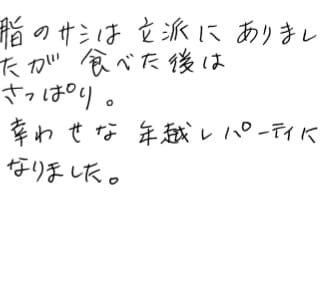 脂のサシは立派にありまし
たが食べた後は
さっぱり。
幸わせな年越しパーティに
なりました。